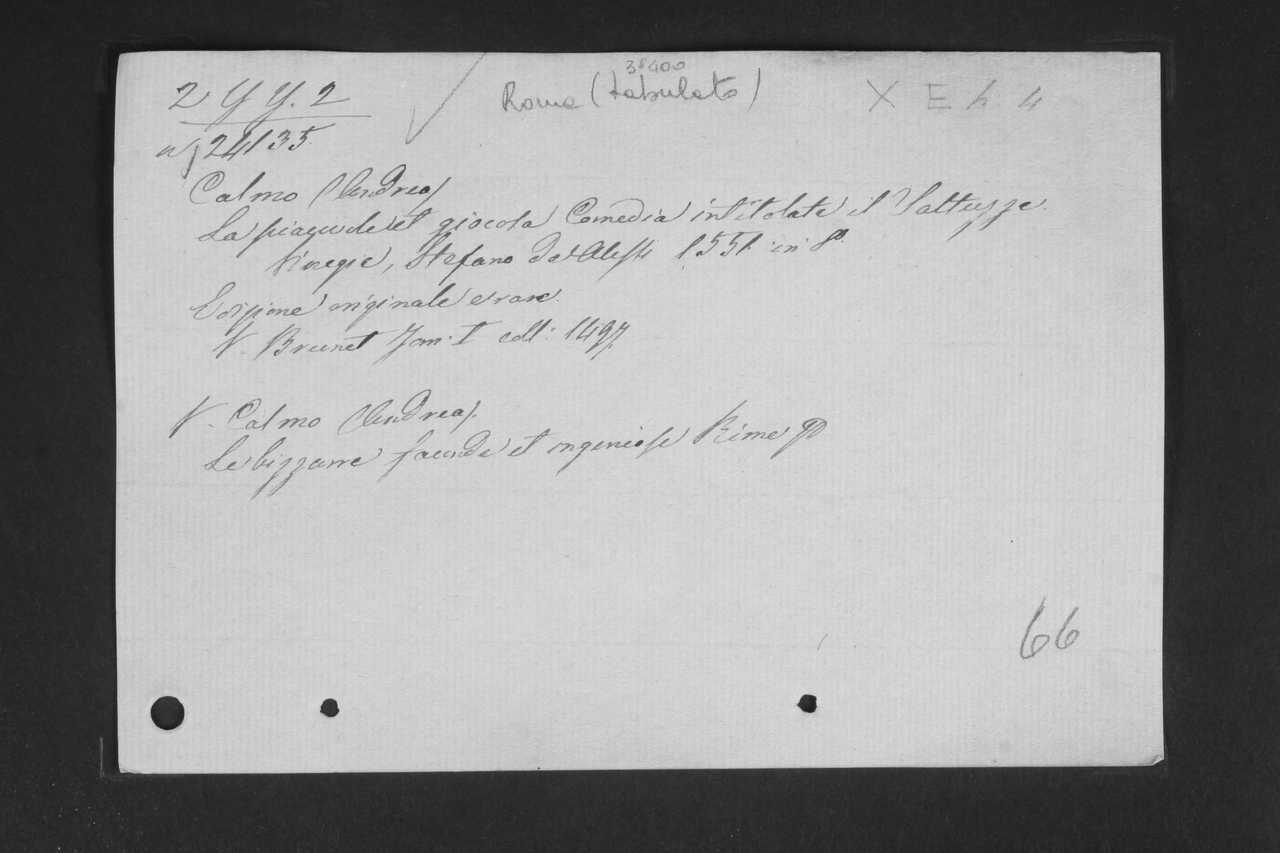 2 Y Y. 2
38400
Roma (tabulato)
X E h 4
24135
Calmo (Andrea)
La piacevole et giocosa Comedia intitolata il Saltuzza
Vinegia, Stefano de Alessi 1551. in 8°.
Edizione originale e rara.
V. Brunet Tom: I coll: 1497
V. Calmo (Andrea).
Le bizzarre faconde et ingeniose Rime
66